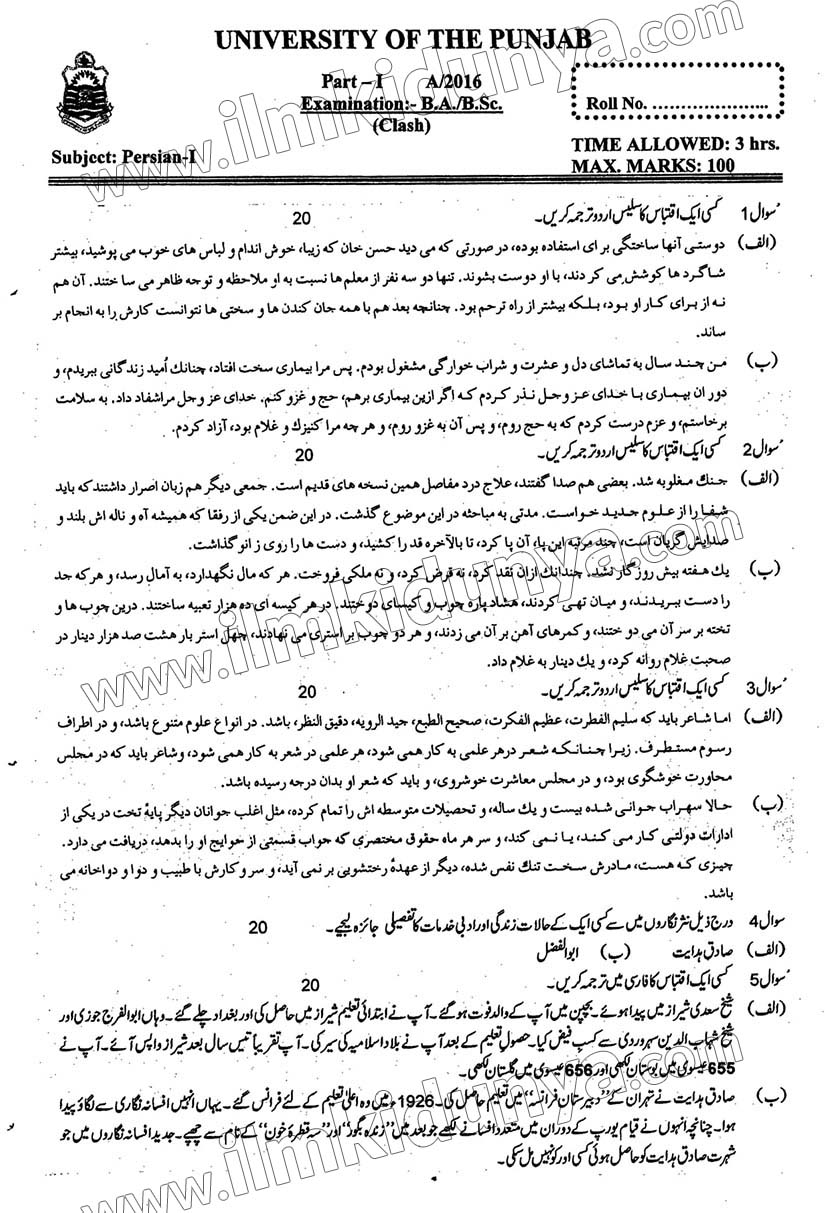 UNIVERSITY OF THE PUNJAB
Part – I A/2016
Examination:- B.A./B.Sc.
(Clash)
Roll No. .......................
Subject: Persian-I
TIME ALLOWED: 3 hrs.
MAX. MARKS: 100
سوال 1 کسی ایک اقتباس کا سلیس اردو ترجمہ کریں۔ 20
(الف) دوستی آنها ساختگی برای استفاده بوده، در صورتی که می دید حسن خان که زیبا، خوش اندام و لباس های خوب می پوشید، بیشتر
شاگرد ها کوشش می کردند، با او دوست بشوند. تنها دو سه نفر از معلم ها نسبت به او ملاحظه و توجه ظاهر می ساختند. آن هم
نه از برای کار او بود، بلکه بیشتر از راه ترحم بود. چنانچه بعد هم با همه جان کندن ها و سختی ها نتوانست کارش را به انجام بر
ساند.
(ب) من چند سال به تماشای دل و عشرت و شراب خوارگی مشغول بودم. پس مرا بیماری سخت افتاد، چنانك اُمید زندگانی ببریدم، و
دوران بیماری با خدای عز وجل نذر کردم که اگر ازین بیماری برهم، حج و غزو کنم. خدای عز وجل مرا شفا داد. به سلامت
برخاستم، و عزم درست کردم که به حج روم، و پس آن به غزو روم، و هر چه مرا کنیزك و غلام بود، آزاد کردم.
سوال 2 کسی ایک اقتباس کا سلیس اردو ترجمہ کریں۔ 20
(الف) جنك مغلوبه شد. بعضی هم صدا گفتند، علاج درد مفاصل همین نسخه های قدیم است. جمعی دیگر هم زبان اصرار داشتند که باید
شفا را از علوم جدید خواست. مدتی به مباحثه در این موضوع گذشت. در این ضمن یکی از رفقا که همیشه آه و ناله اش بلند و
صدایش گریان است، چند مرتبه این پا، آن پا کرد، تا بالآخره قد را کشید، و دست ها را روی زانو گذاشت.
(ب) یك هفته بیش روزگار نشد. چندانك ازان نقد کرد، نه قرض کرد، و نه ملکی فروخت. هر که مال نگهدارد، به آمال رسد، و هر که حد
را دست ببریدند، و میان تهی کردند، هشاد پاره چوب و کیسای دوختند. در هر کیسه ای ده هزار تعبیه ساختند. درین چوب ها و
تخته بر سر آن می دوختند، و کمرهای آهن بر آن می زدند، و هر دو چوب بر استری می نهادند، چهل استر بار هشت صد هزار دینار در
صحبت غلام روانه کرد، و یك دینار به غلام داد.
سوال 3 کسی ایک اقتباس کا سلیس اردو ترجمہ کریں۔ 20
(الف) اما شاعر باید که سلیم الفطرت، عظیم الفکرت، صحیح الطبع، جید الرویه، دقیق النظر، باشد. در انواع علوم متنوع باشد، و در اطراف
رسوم مستطرف. زیرا چنانکه شعر در هر علمی به کار همی شود، هر علمی در شعر به کار همی شود، وشاعر باید که در مجلس
محاورت خوشگوی بود، و در مجلس معاشرت خوشروی، و باید که شعر او بدان درجه رسیده باشد.
(ب) حالا سهراب جوانی شده بیست و یك ساله، و تحصیلات متوسطه اش را تمام کرده، مثل اغلب جوانان دیگر پایهٔ تخت در یکی از
ادارات دولتی کار می کند، یا نمی کند، و سر هر ماه حقوق مختصری که جواب قسمتی از حوایج او را بدهد، دریافت می دارد.
چیزی که هست، مادرش سخت تنك نفس شده، دیگر از عهدهٔ رختشویی بر نمی آید، و سر و کارش با طبیب و دوا و دواخانه می
باشد.
سوال 4 درج ذیل نثر نگاروں میں سے کسی ایک کے حالات زندگی اور ادبی خدمات کا تفصیلی جائزہ لیجیے۔ 20
(الف) صادق ہدایت (ب) ابوالفضل
سوال 5 کسی ایک اقتباس کا فارسی میں ترجمہ کریں۔ 20
(الف) شیخ سعدی شیراز میں پیدا ہوئے۔ بچپن میں آپ کے والد فوت ہو گئے۔ آپ نے ابتدائی تعلیم شیراز میں حاصل کی اور بغداد چلے گئے۔ وہاں ابوالفرج جوزی اور
شیخ شہاب الدین سہروردی سے کسب فیض کیا۔ حصول تعلیم کے بعد آپ نے بلاد اسلامیہ کی سیر کی۔ آپ تقریباً تیس سال بعد شیراز واپس آئے۔ آپ نے
655 عیسوی میں بوستان لکھی اور 656 عیسوی میں گلستان لکھی۔
(ب) صادق ہدایت نے تہران کے "دبیرستان فرانسہ" میں تعلیم حاصل کی۔ 1926ء میں وہ اعلیٰ تعلیم کے لئے فرانس گئے۔ یہاں انہیں افسانہ نگاری سے لگاؤ پیدا
ہوا۔ چنانچہ انہوں نے قیام یورپ کے دوران میں متعدد افسانے لکھے جو بعد میں "زندہ بگور" اور "سہ قطرۂ خون" کے نام سے چھپے۔ جدید افسانہ نگاروں میں جو
شہرت صادق ہدایت کو حاصل ہوئی کسی اور کو نہیں مل سکی۔
www.ilmkidunya.com
www.ilmkidunya.com
www.ilmkidunya.com